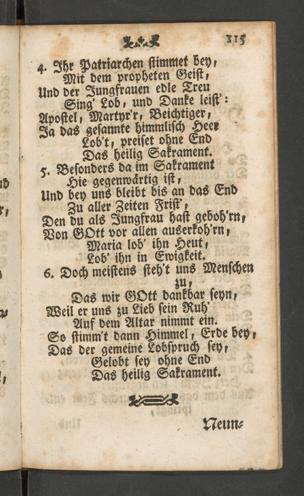 315
4. Ihr Patriarchen stimmet bey,
Mit dem propheten Geist,
Und der Jungfrauen edle Treu
Sing' Lob, und Danke leist':
Apostel, Martyr'r, Beichtiger,
Ja das gesamte himmlisch Heer
Lob't, preiset ohne End
Das heilig Sakrament.
5. Besonders da im Sakrament
Hie gegenwärtig ist,
Und bey uns bleibt bis an das End
Zu aller Zeiten Frist,
Den du als Jungfrau hast geboh'rn,
Von GOtt vor allen auserkoh'rn,
Maria lob' ihn Heut,
Lob' ihn in Ewigkeit.
6. Doch meistens steh't uns Menschen
zu,
Das wir GOtt dankbar seyn,
Weil er uns zu Lieb sein Ruh'
Auf dem Altar nimmt ein.
So stimm't dann Himmel, Erde bey,
Das der gemeine Lobspruch sey,
Gelobt sey ohne End
Das heilig Sakrament.
Neun-